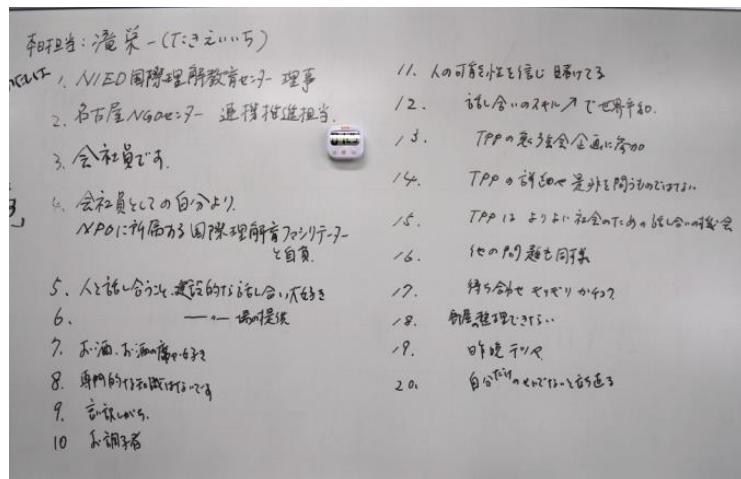 本日担当:滝 栄一(たきえいいち)
1. NIED国際理解教育センター 理事
2. 名古屋NGOセンター 連携推進担当.
3. 会社員です.
4. 会社員としての自分より、
NPOに所属する国際理解教育ファシリテーター
と自負.
5. 人と話し合うこと、建設的な話し合い大好き
6. 〃 場の提供
7. お酒、お酒の席が好き
8. 専門的な知識はないです
9. 言い訳しがち.
10 お調子者
11. 人の可能性を信じ 賭けてる
12. 話し合いのスキル↗で世界平和.
13. TPPの勉強会企画に参加
14. TPPの詳細や是非を問うものではない
15. TPPは よりよい社会のための話し合いの機会
16. 他の問題も同様
17. 待ち合わせ ギリギリ
18. 部屋の整理できない
19. 昨晩 テツヤ
20. 自分だけのせいでないと